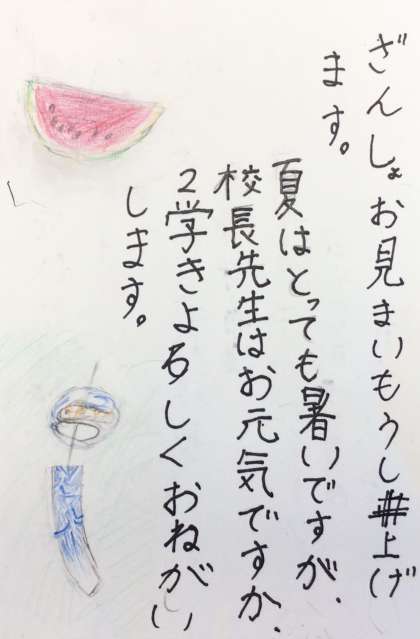 ざんしょお見まいもうし上げ
ます。
夏はとっても暑いですが、
校長先生はお元気ですか、
2学きよろしくおねがい
します。